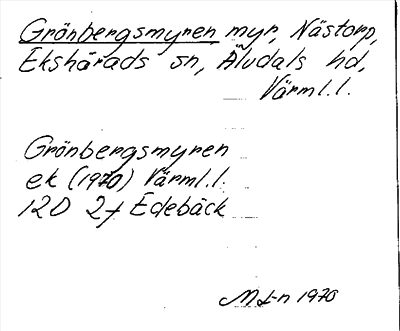 Grönbergsmyren myr, Nästorp,
Ekshärads sn, Älvdals hd,
Värml.l.
Grönbergsmyren
ek (1970) Värml.l.
12D 2f Edebäck
M L-n 1970